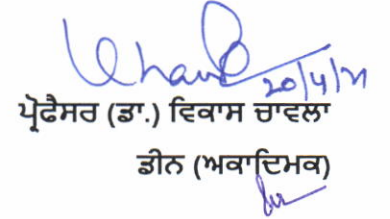 20/4/21
ਪ੍ਰੋਫੈਸਰ (ਡਾ.) ਵਿਕਾਸ ਚਾਵਲਾ
ਡੀਨ (ਅਕਾਦਿਮਕ)